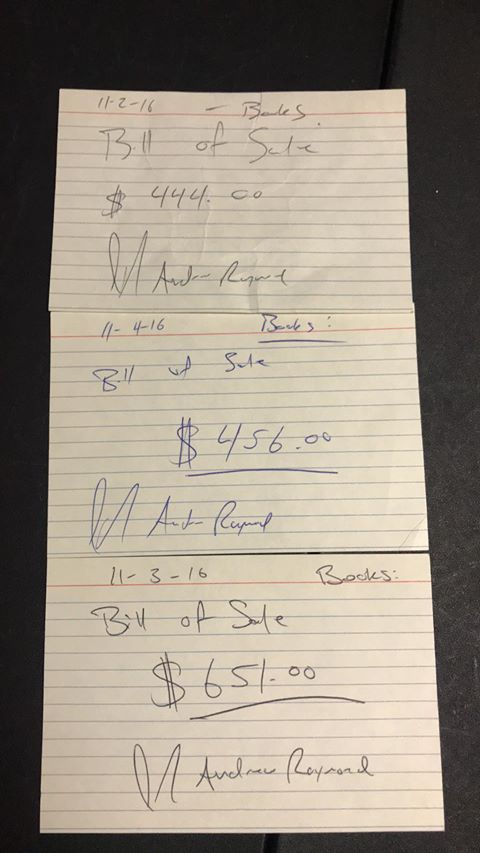 11-2-16 - Books.
Bill of Sale
$ 444.00
Andrew Raymond
11-4-16 Books:
Bill of Sale
$ 456.00
Andrew Raymond
11-3-16 Books:
Bill of Sale
$ 651.00
Andrew Raymond